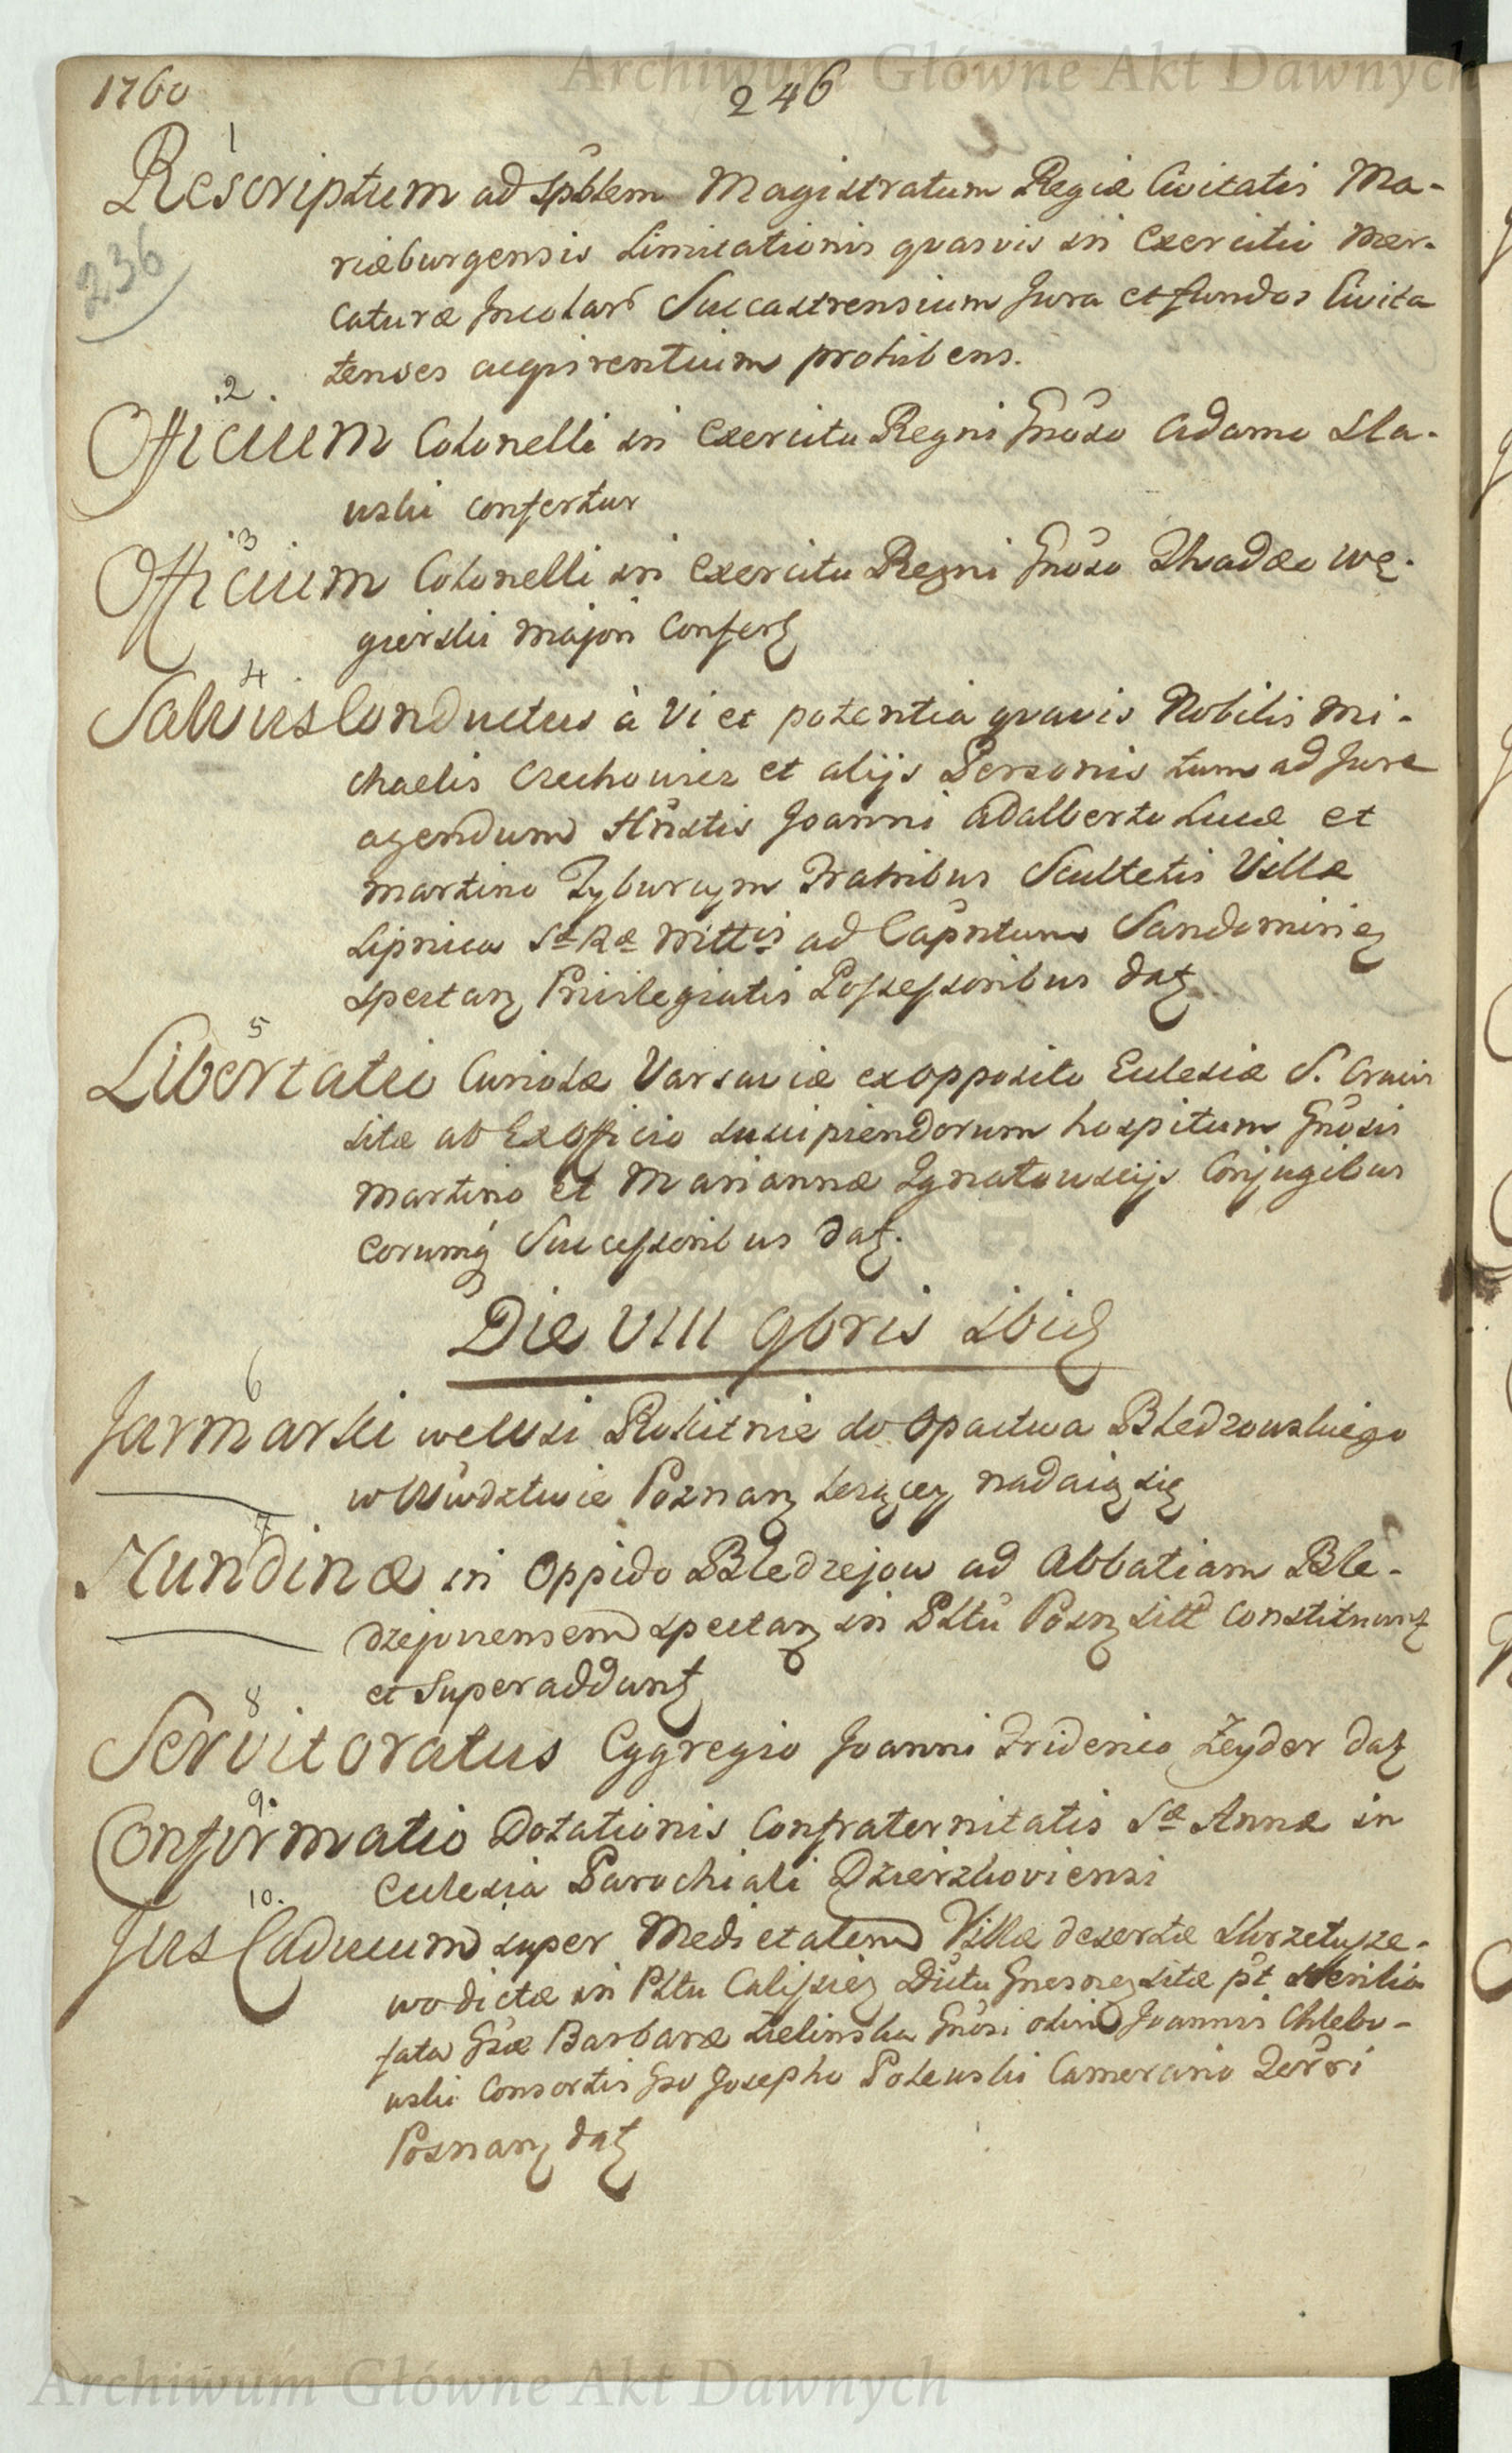 Archiwum Główne Akt Dawnych
1760
246
1
Rescriptum ad Spblem Magistratum Regiæ Civitatis Ma-
236
riæburgensis Limitationis quasvis in Exercitio Mer-
caturæ Incolar Succastrensium Jura et fundos Civita
tenses acqvirentium prohibens.
.2.
Officium Colonelli in Exercitu Regni Gnoso Adamo
uski confertur
.3
Officium Colonelli in Exercitu Regni Gnoso Thadæo Wę-
gierski Majori Confert
4.
Salvus Conductus à Vi et potentia qvavis Nobilis Mi-
chaelis Czechowicz et alijs Personis tum ad Jure
agendum Hnstis Joanni Adalberto Lucæ et
Martino Tyburcym Fratribus Scultetis Villæ
Lipnica Sæ Ræ Mttis ad Capntum Sandomirien
spectan Privilegiatis Possessoribus dat.
5
Libertatio Curiolæ Varsaviæ ex opposito Eclesiæ S. Crucis
sitæ ab Ex Officio suscipiendorum hospitum Gnosis
Martino et Mariannæ Ignatowscijs Conjugibus
eorumq Successoribus dat.
Die VIII 9bris ibid
6
Jarmarki we wsi Rokitnie do Opactwa Bledzowskiego
w Wwdztwie Poznan leżącey nadaią się
7
Nundinæ in Oppido Bledzejow ad Abbatiam Ble-
dzejoviensem spectan in Pltu Posn sitt constituunt
et Superaddunt
8
Servitoratus Eggregio Joanni Friderico Zeyder dat
9.
Confirmatio Dotationis Confraternitatis Sæ Annæ in
Eclesia Parochiali Dzierzkoviensi
10.
Jus Caducum super Medietatem Villæ desertæ Skrzetusze-
wo dictæ in Pltu Calissien Dictu Gnesnen sitæ pt sterilia
fata Gsæ Barbaræ Zielinska Gnosi olim Joannis Chlebo-
uski Consortis Gso Josepho Potenski Camerario Terrri
Posnan dat
Archiwum Główne Akt Dawnych